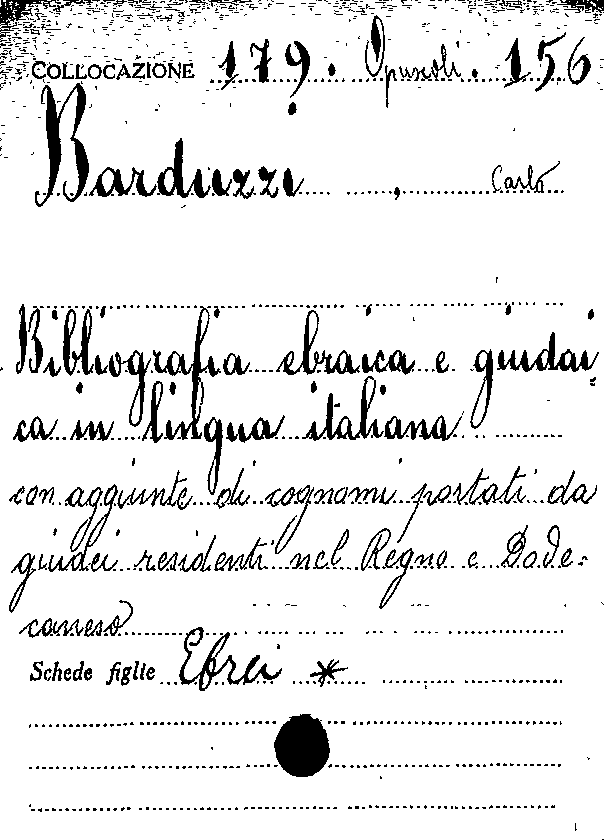 COLLOCAZIONE 179. Opuscoli. 156
Barduzzi, Carlo
Bibliografia ebraica e giudai-
ca in lingua italiana
con aggiunte di cognomi portati da
giudei residenti nel Regno e Dode-
canneso
Schede figlie Ebrei *